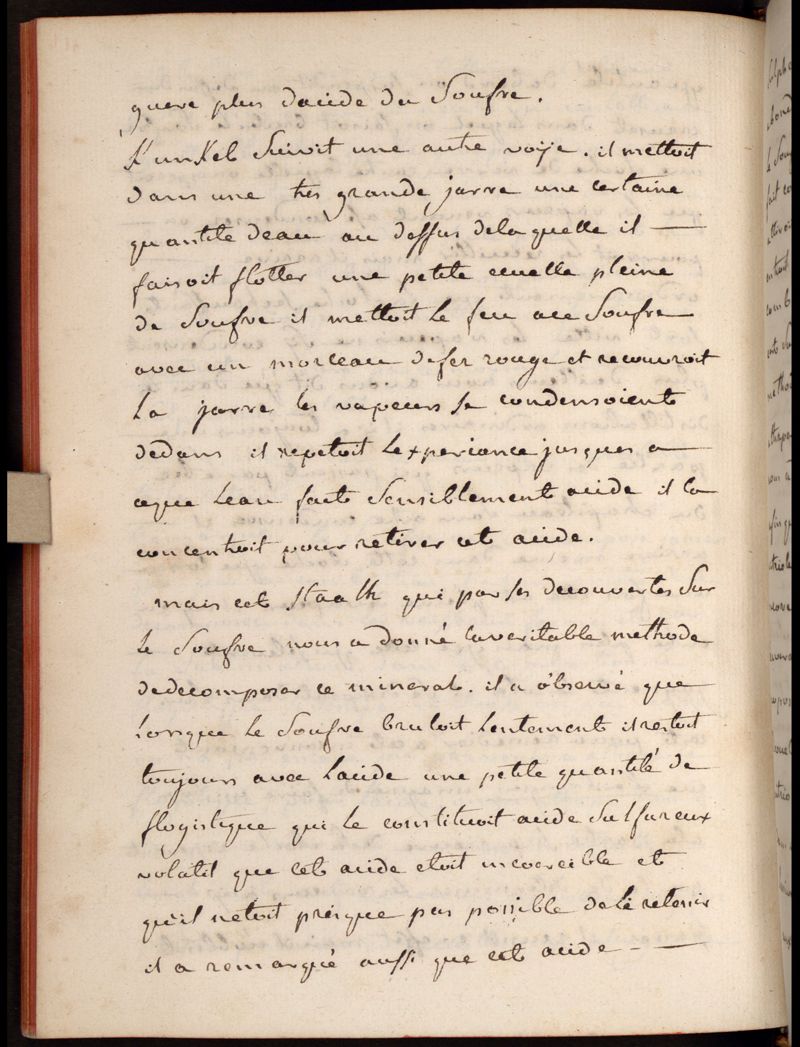 guere plus dacide du Soufre.
Kunkel Suivoit une autre voije. il mettoit
dans une tres grande jarre une certaine
quantite deau au dessus dela quelle il —
faisoit flotter une petite ecuelle pleine
de Soufre il mettoit le feu au Soufre
avec un morceau defer rouge et recouvroit
la jarre les vapeurs se condensoient
dedans il repetoit lexperiance jusques a
ceque leau fut Sensiblement acide il la
concentroit pour retirer cet acide.
mais cet Staalh qui par ses decouvertes Sur
le Soufre nous a donné laveritable methode
dedecomposer ce mineral. il a óbservé que
lorsque le Soufre bruloit lentement il restoit
toujours avec lacide une petite quantité de
flogistique qui le constituoit acide Sulfureux
volatil que cet acide etoit incoercible et
qu'il netoit presque pas possible dele retenir
il a remarqué aussi que cet acide — —